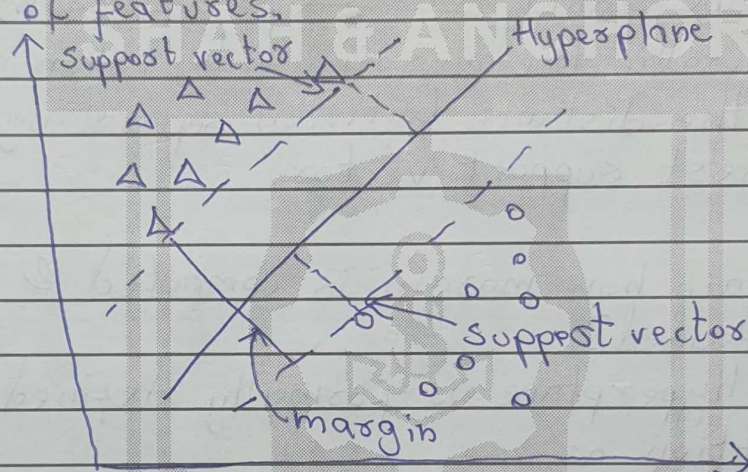 of features.
SHAH & ANCHOR
Support vector
Hyperplane
Suppost vector
margin